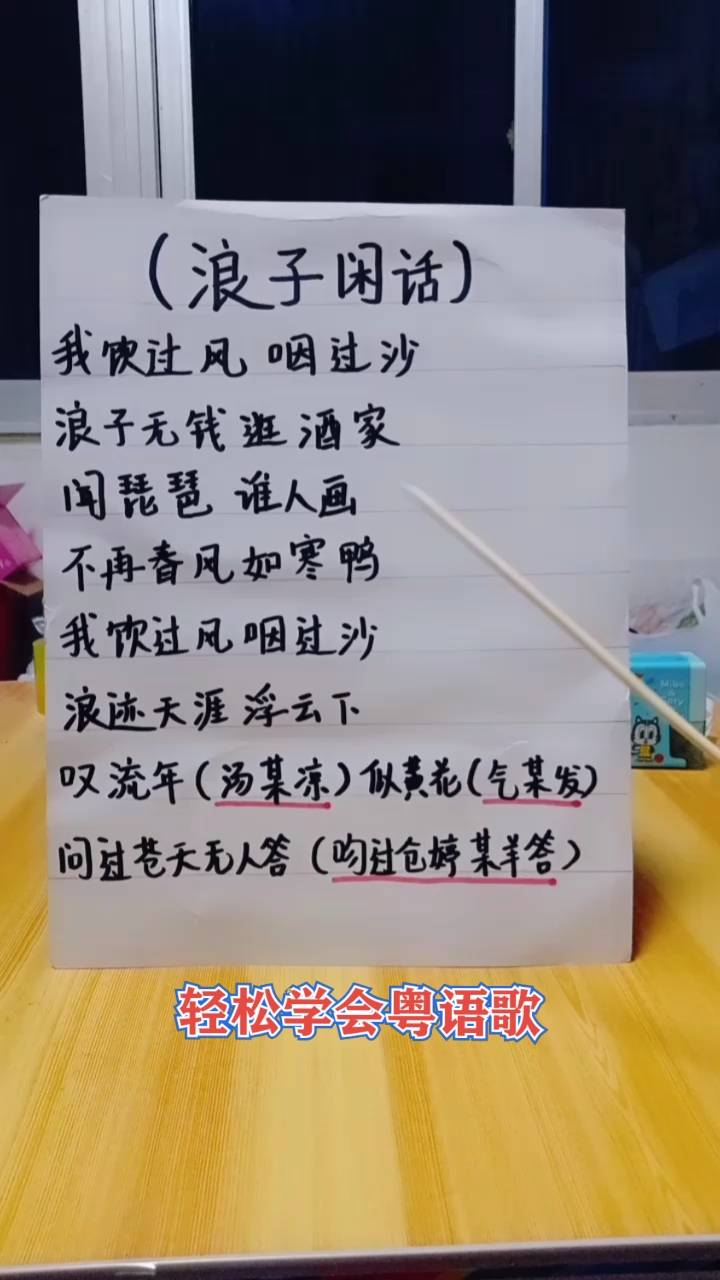 （浪子闲话）
我饮过风 咽过沙
浪子无钱逛酒家
闻琵琶 谁人画
不再春风如寒鸭
我饮过风咽过沙
浪迹天涯浮云下
叹流年（汤某凉）似黄花（气某发）
问过苍天无人答（吻过仓婷某羊答）
轻松学会粤语歌